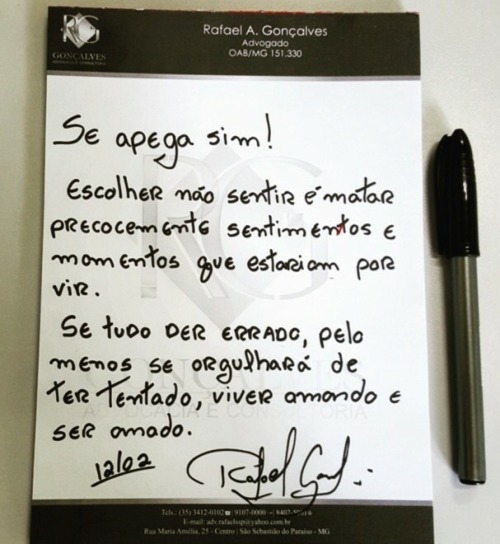 Rafael A. Gonçalves
Advogado
OAB/MG 151.330
GONÇALVES
Se apega sim!
Escolher não sentir é matar
precocemente sentimentos e
momentos que estariam por
vir.
Se tudo der errado, pelo
menos se orgulhará de
ter tentado, viver amando e
ser amado.
12/02
GONÇALVES
ADVOCACIA E CONSULTORIA
Tels.: (35) 3412-0102 9107-0000
E-mail: adv.rafaelsp@yahoo.com.br
Rua Maria Amélia, 25 - Centro | São Sebastião do Paraíso - MG